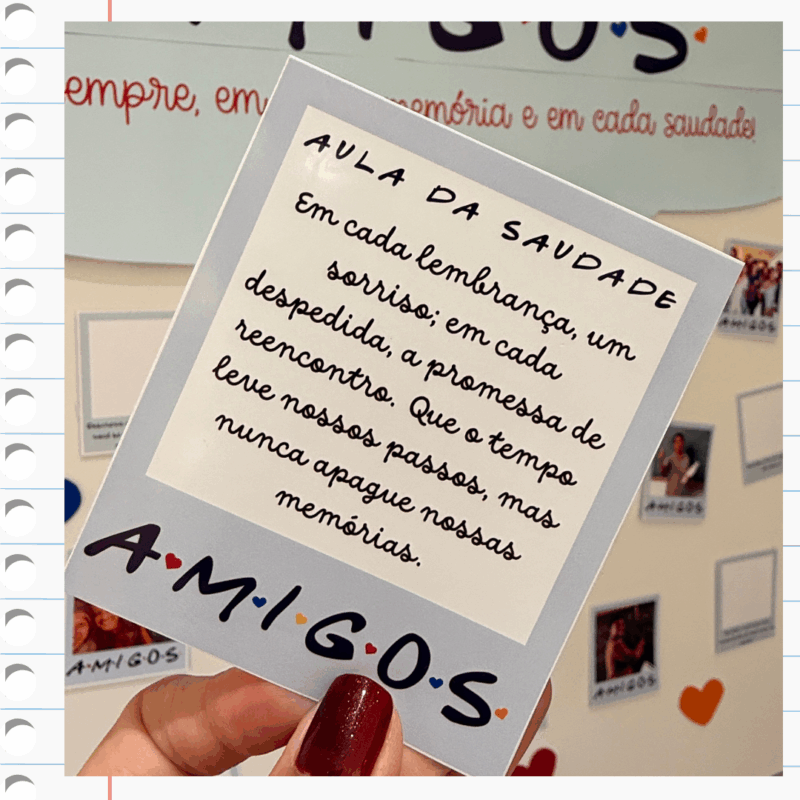 M·I·G·O·S
empre, em memória e em cada saudade!
AULA DA SAUDADE
Em cada lembrança, um
sorriso; em cada
despedida, a promessa de
reencontro. Que o tempo
leve nossos passos, mas
nunca apague nossas
memórias.
A·M·I·G·O·S
AMIGOS
AMIGOS
AMIGOS
A·M·I·G·O·S